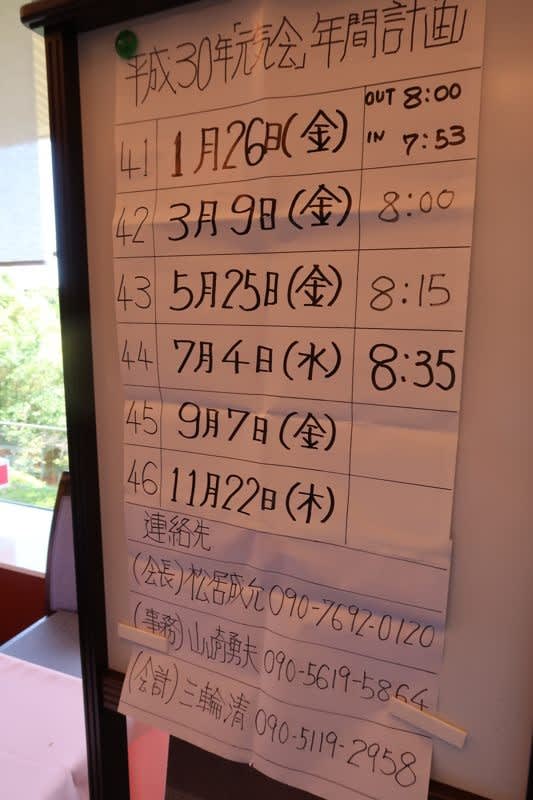 平成30年「元気会」年間計画
41 1月26日(金) OUT 8:00
IN 7:53
42 3月9日(金) 8:00
43 5月25日(金) 8:15
44 7月4日(水) 8:35
45 9月7日(金)
46 11月22日(木)
連絡先
(会長)松居成允 090-7692-0120
(事務)山崎勇夫 090-5619-5864
(会計)三輪清 090-5119-2958